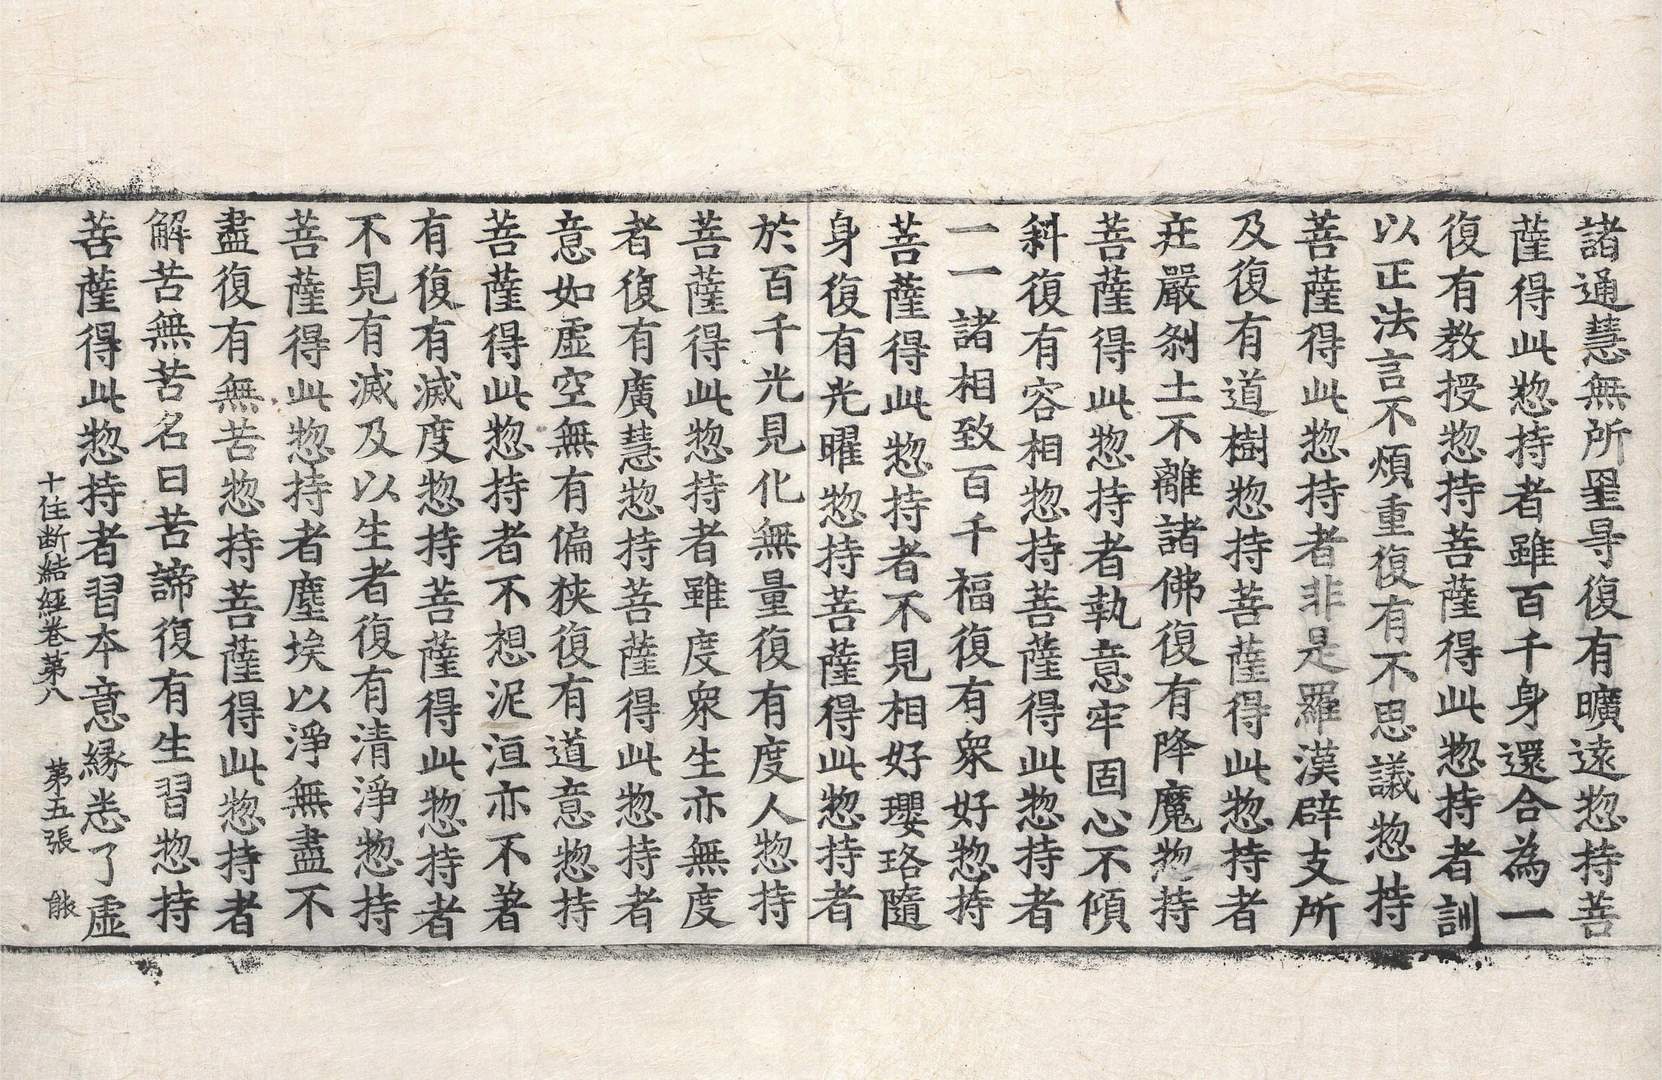 諸通慧無所罣㝵復有曠遠惣持菩
薩得此惣持者雖百千身還合為一
復有教授惣持菩薩得此惣持者訓
以正法言不煩重復有不思議惣持
菩薩得此惣持者非是羅漢辟支所
及復有道樹惣持菩薩得此惣持者
莊嚴刹土不離諸佛復有降魔惣持
菩薩得此惣持者執意牢固心不傾
斜復有容相惣持菩薩得此惣持者
一一諸相致百千福復有衆好惣持
菩薩得此惣持者不見相好瓔珞隨
身復有光曜惣持菩薩得此惣持者
於百千光見化無量復有度人惣持
菩薩得此惣持者雖度衆生亦無度
者復有廣慧惣持菩薩得此惣持者
意如虛空無有偏狹復有道意惣持
菩薩得此惣持者不想泥洹亦不著
有復有滅度惣持菩薩得此惣持者
不見有滅及以生者復有清淨惣持
菩薩得此惣持者塵埃以淨無盡不
盡復有無苦惣持菩薩得此惣持者
解苦無苦名曰苦諦復有生習惣持
菩薩得此惣持者習本意緣悉了虛
十住断結經卷第八 第五張